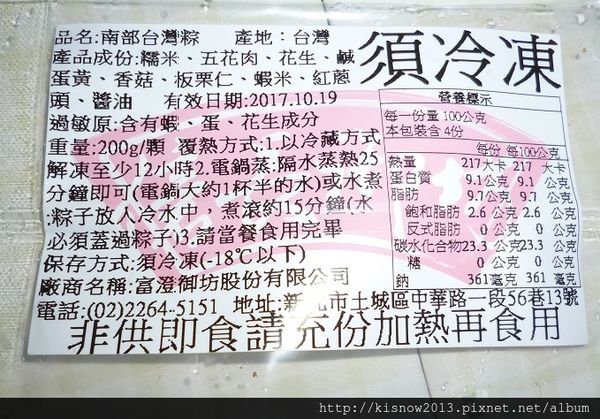 品名:南部台灣粽 產地:台灣
產品成份:糯米、五花肉、花生、鹹
蛋黃、香菇、板栗仁、蝦米、紅蔥
頭、醬油 有效日期:2017.10.19
過敏原:含有蝦、蛋、花生成分
重量:200g/顆 覆熱方式:1.以冷藏方式
解凍至少12小時2.電鍋蒸:隔水蒸熱25
分鐘即可(電鍋大約1杯半的水)或水煮
:粽子放入冷水中，煮滾約15分鐘(水
必須蓋過粽子)3.請當餐食用完畢
保存方式:須冷凍(-18℃以下)
廠商名稱:富澄御坊股份有限公司
電話:(02)2264-5151 地址:新北市土城區中華路一段56巷13號
須冷凍
營養標示
每一份量 100公克
本包裝含 4份
每份 每100公克
熱量 217大卡 217 大卡
蛋白質 9.1公克 9.1 公克
脂肪 9.7公克 9.7 公克
飽和脂肪 2.6 公克 2.6 公克
反式脂肪 0 公克 0 公克
碳水化合物 23.3 公克 23.3 公克
糖 0 公克 0 公克
鈉 361毫克 361 毫克
非供即食請充份加熱再食用
http://kisnow2013.pixnet.net/album